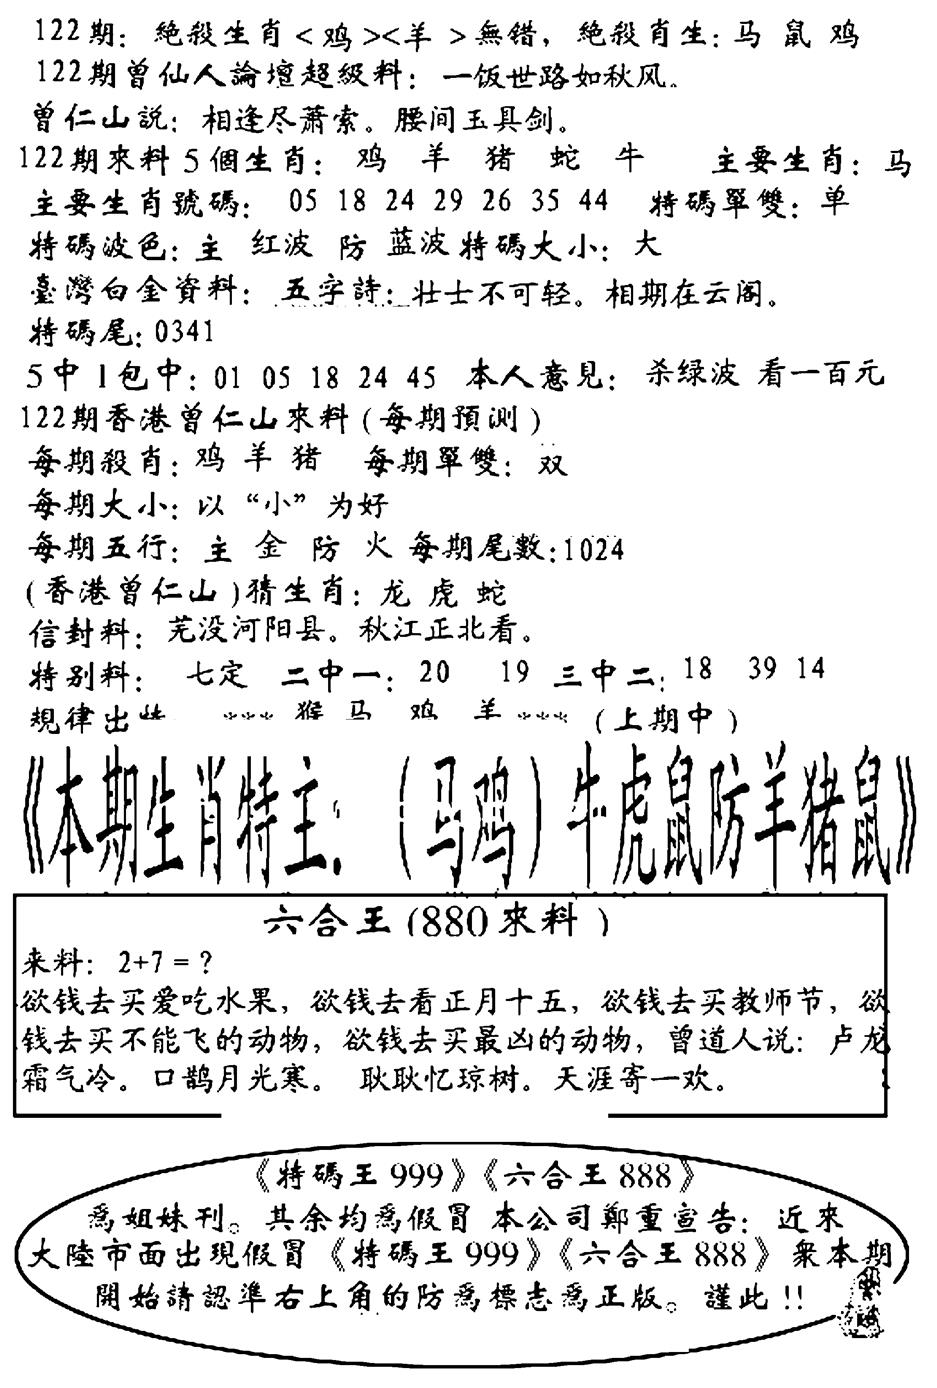 122期: 絶殺生肖<鸡><羊 >無错, 絶殺肖生:马 鼠 鸡
122期曾仙人論壇超級料: 一饭世路如秋风。
曾仁山説: 相逢尽萧索。腰间玉具剑。
122期來料5個生肖: 鸡 羊 猪 蛇 牛 主要生肖: 马
主要生肖號碼: 05 18 24 29 26 35 44 特碼單雙: 单
特碼波色: 主 红波 防 蓝波 特碼大小: 大
臺灣白金資料: 五字詩: 壮士不可轻。相期在云阁。
特碼尾: 0341
5中1包中: 01 05 18 24 45 本人意見: 杀绿波 看一百元
122期香港曾仁山來料(每期預测)
每期殺肖: 鸡 羊 猪 每期單雙: 双
每期大小: 以“小”为好
每期五行: 主 金 防 火 每期尾數:1024
(香港曾仁山)猜生肖: 龙 虎 蛇
信封料: 芜没河阳县。秋江正北看。
特别料: 七定 二中一: 20 19 三中二: 18 39 14
規律出特 *** 猴 马 鸡 羊 *** (上期中)
《本期生肖特主:(马鸡)牛虎鼠防羊猪鼠》
六合王(880來料)
来料: 2+7=?
欲钱去买爱吃水果, 欲钱去看正月十五, 欲钱去买教师节, 欲
钱去买不能飞的动物, 欲钱去买最凶的动物, 曾道人说: 卢龙
霜气冷。口鹊月光寒。 耿耿忆琼树。天涯寄一欢。
《特碼王999》《六合王888》
爲姐妹刊。其余均爲假冒 本公司鄭重宣告: 近來
大陸市面出現假冒《特碼王999》《六合王888》衆本期
開始請認準右上角的防爲標志爲正版。謹此!!